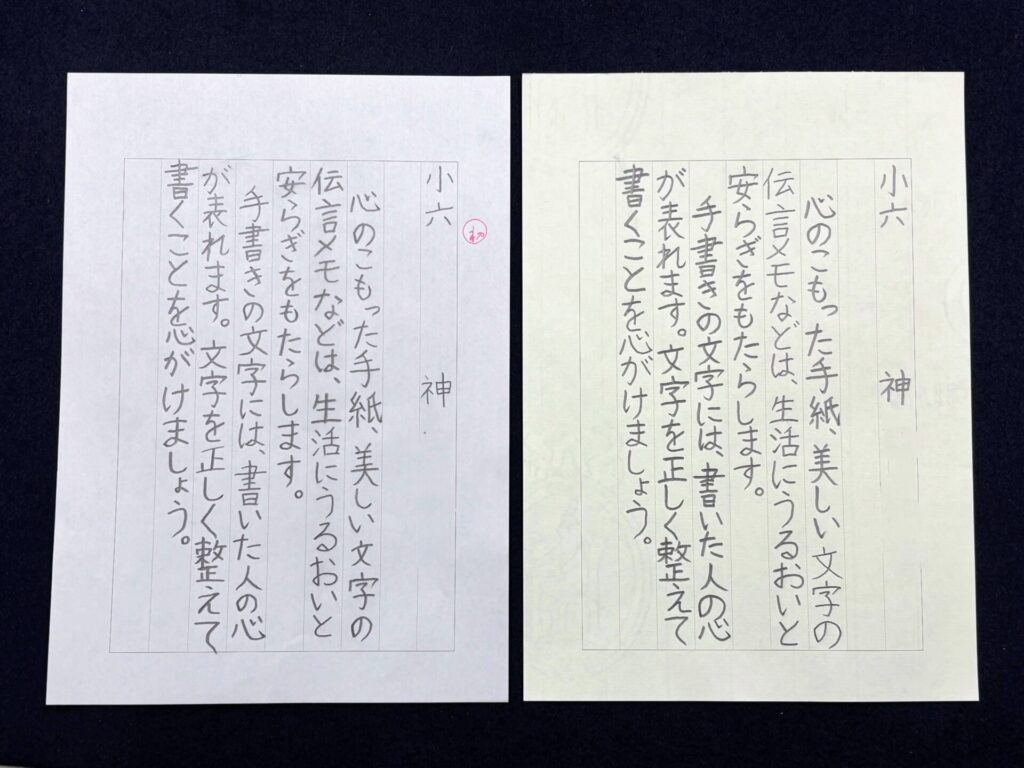 初
小六　神
心のこもった手紙、美しい文字の
伝言メモなどは、生活にうるおいと
安らぎをもたらします。
手書きの文字には、書いた人の心
が表れます。文字を正しく整えて
書くことを心がけましょう。
小六　神
心のこもった手紙、美しい文字の
伝言メモなどは、生活にうるおいと
安らぎをもたらします。
手書きの文字には、書いた人の心
が表れます。文字を正しく整えて
書くことを心がけましょう。